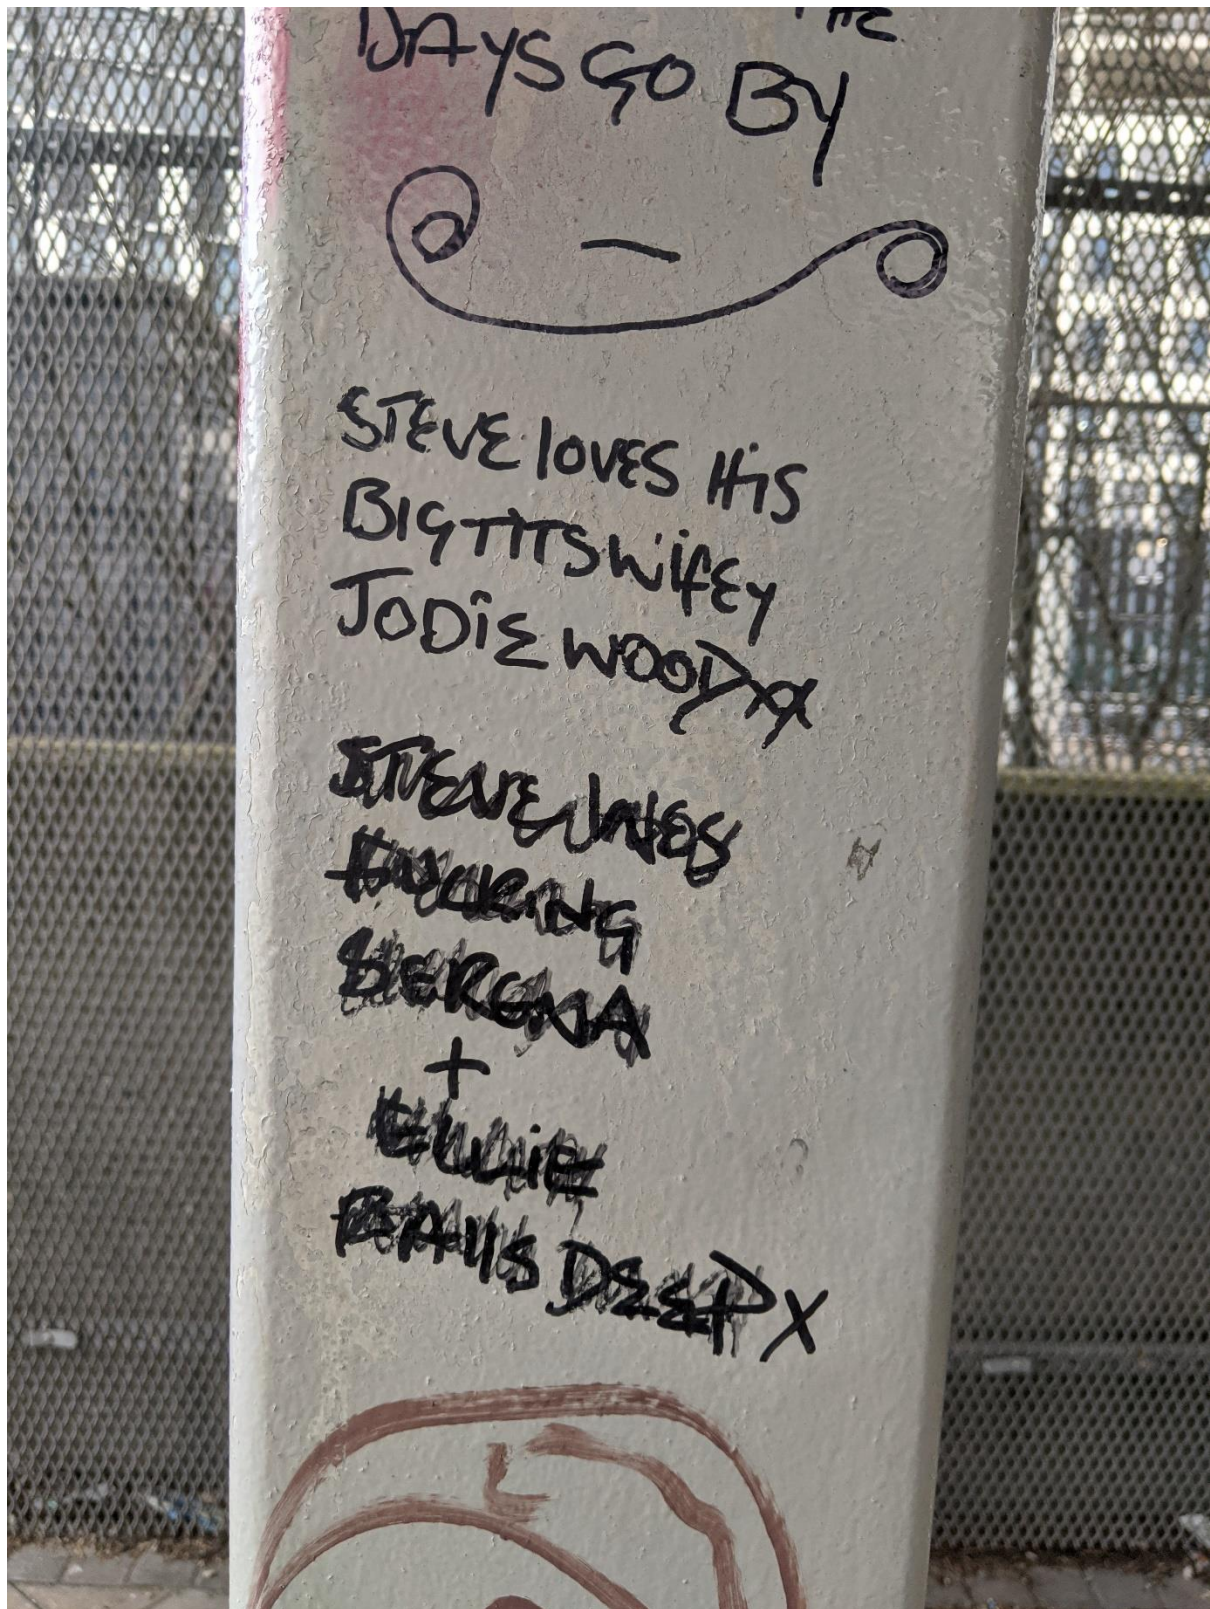 THE
DAYS GO BY
STEVE lOVES HiS
BIG TITS WifEY
JODiE WOOD xx
STEVE lOVES
FUCKING
+
ELLiE
BAllS DEEP X